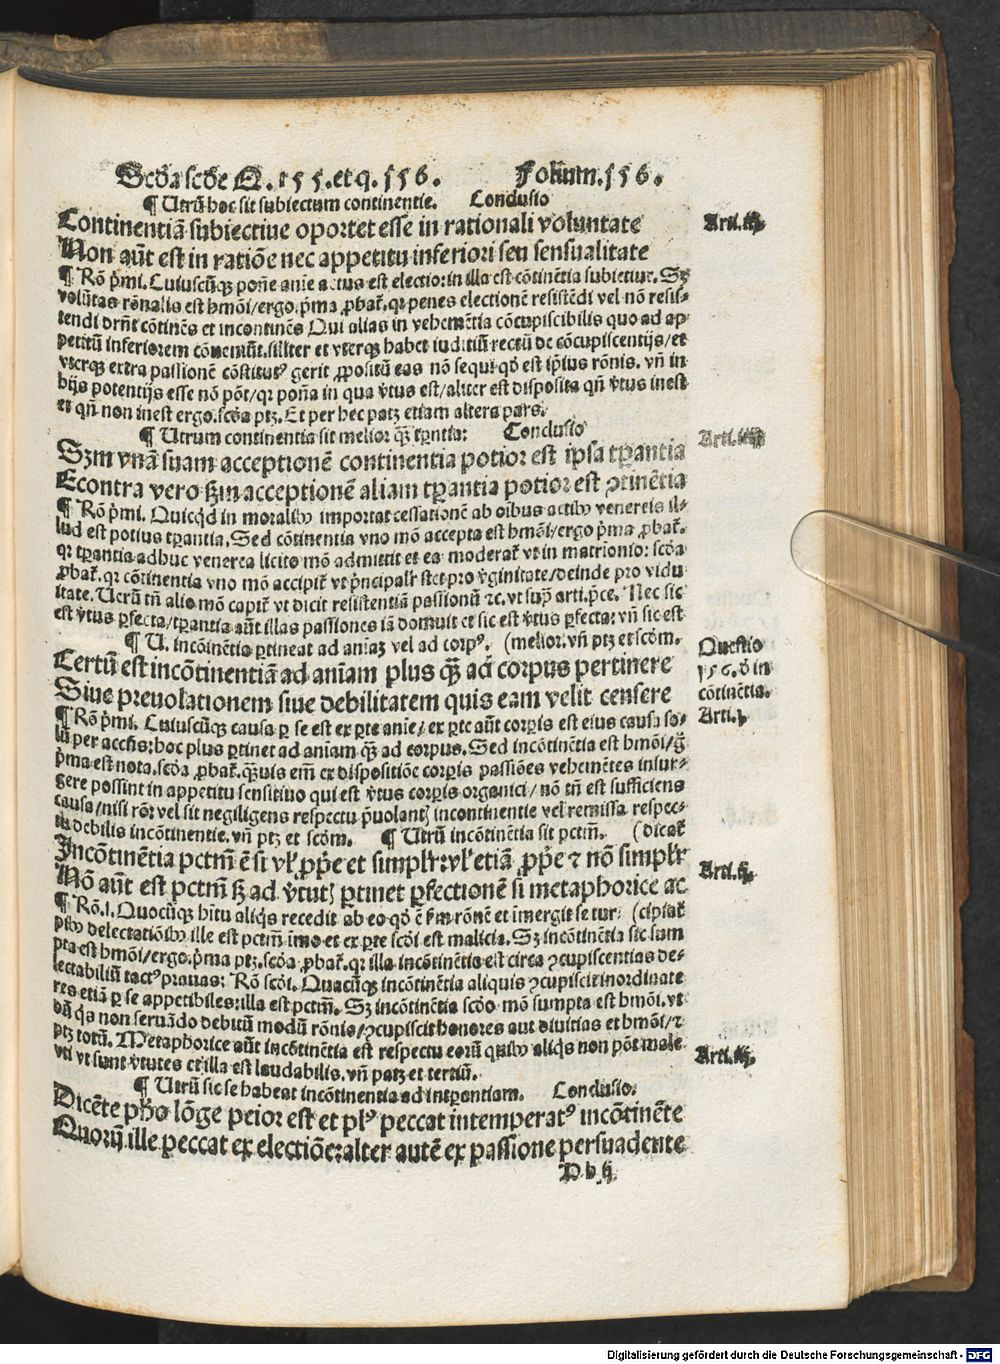 Scd̄a scd̄e Q. 155. et q. 156. Folium. 156.
¶ Utrū hoc sit subiectum continentie. Conclusio
Continentiā subiectiue oportet esse in rationali voluntate
Arti. iij.
Non aūt est in ratiōe nec appetitu inferiori seu sensualitate
¶ Rō p̄mi. Cuiuscūqꝫ pont̄e anīe actus est electio: in illa est cōtinētia subiectiue. Sꝫ
volūtas rōnalis est hmōi/ergo. p̄ma ꝓbat̄. qꝛ penes electionē resistēdi vel nō resis-
tendi dn̄t cōtinēs et incontinēs Qui alias in vehemētia cōcupiscibilis quo ad ap
petitū inferiorem cōueniūt. siliter et vterqꝫ habet iuditiū rectū de cōcupiscentijs/et
vterqꝫ extra passionē cōstitutꝰ gerit ꝓpositū eas nō sequi qd̓ est ip̄ius rōnis. vn̄ in
hijs potentijs esse nō pōt/qꝛ pon̄a in qua v̓tus est/aliter est disposita qn̄ v̓tus inest
et qn̄ non inest ergo. scd̄a ptꝫ. Et per hec patꝫ etiam altera pars.
¶ Utrum continentia sit melior qꝫ̄ tꝑantia: Conclusio
Arti. iiij
Sꝫm vnā suam acceptionē continentia potior est ip̄sa tꝑantia
Econtra vero ẜm acceptionē aliam tꝑantia potior est ꝯtinētia
¶ Rō p̄mi. Quicqd̓ in moralibꝰ importat cessationē ab oībus actibꝰ venereis il-
lud est potius tꝑantia, Sed cōtinentia vno mō accepta est hmōi/ergo p̄ma ꝓbat̄.
qꝛ tꝑantia adhuc venerea licito mō admittit et ea moderat̄ vt in matrīonio: scd̄a
ꝓbat̄. qꝛ cōtinentia vno mō accipit̄ vt p̄ncipalr̄ stet pro v̓ginitate/deinde pro vidu
itate. Uerū tn̄ alio mō capit̄ vt dicit resistentiā passionū ⁊c. vt sup̄ arti. p̄ce. Nec sic
est v̓tus ꝑfecta/tꝑantia aūt illas passiones iā domuit et sic est v̓tus ꝑfecta: vn̄ sic est
¶ U. incōinētia ꝑtineat ad aniaꝫ vel ad corpꝰ. (melior. vn̄ ptꝫ et scd̄m.
Questio
156. d̓ in
cōtinētia.
Arti. j.
Certū est incōtinentiā ad aniam plus qꝫ̄ ad corpus pertinere
Siue preuolationem siue debilitatem quis eam velit censere
¶ Rō p̄mi. Cuiuscūqꝫ causa ꝑ se est ex ꝑte anīe/ ex ꝑte aūt corꝑis est eius causa so-
lū per accn̄s: hoc plus ꝑtinet ad aniam qꝫ̄ ad corpus. Sed incōtinētia est hmōi/g̊
p̄ma est nota. scd̄a ꝓbat̄. qꝫ̄uis em̄ ex dispositiōe corꝑis passiōes vehemētes insur-
gere possint in appetitu sensitiuo qui est v̓tus corꝑis organici/ nō tn̄ est sufficiens
causa/nisi rō: vel sit negligens respectu p̄uolantꝫ incontinentie vel remissa respec-
tu debilis incōtinentie. vn̄ ptꝫ et scd̄m. ¶ Utrū incōtinētia sit pctm̄. (dicat̄
Incōtinētia pctm̄ ē si vl̓ ꝓpr̄e et simplr̄: vl̓ etiā ꝓpr̄e ⁊ nō simplr̄
Arti. ij.
Nō aūt est pctm̄ sꝫ ad v̓tutꝫ ꝑtinet ꝑfectionē si metaphorice ac
¶ Rō. i. Quocūqꝫ hītu aliqs recedit ab eo qd̓ ē ẜm rōnē et īmergit se tur- (cipiat̄
pibꝰ delectatiōibꝰ ille est pctm̄ īmo et ex ꝑte scd̄i est malicia. Sꝫ incōtinētia sic sum
pta est hmōi/ergo. p̄ma ptꝫ. scd̄a ꝓbat̄. qꝛ illa incōtinētia est circa ꝯcupiscentias de-
lectabiliū tactꝰ prauas: Rō scd̄i. Quacūqꝫ incōtinētia aliquis ꝯcupiscit inordinate
res etiā ꝑ se appetibiles: illa est pctm̄. Sꝫ incōtinētia scd̄o mō sumpta est hmōi. vt
dū qs non seruādo debitū modū rōnis/ꝯcupiscit honores aut diuitias et hmōi/⁊
ptꝫ totū. Metaphorice aūt incōtinētia est respectu eorū quibꝰ aliqs non pōt male
Arti. iij.
vti vt sunt v̓tutes et illa est laudabilis. vn̄ patꝫ et tertiū.
¶ Utrū sic se habeat incōtinentia ad intꝑantiam. Conclusio.
Dicēte ph̄o lōge peior est et plꝰ peccat intemperatꝰ incōtinēte
Quorū ille peccat ex electiōe: alter autē ex passione persuadente
D. b. ij.
Digitalisierung gefördert durch die Deutsche Forschungsgemeinschaft - DFG